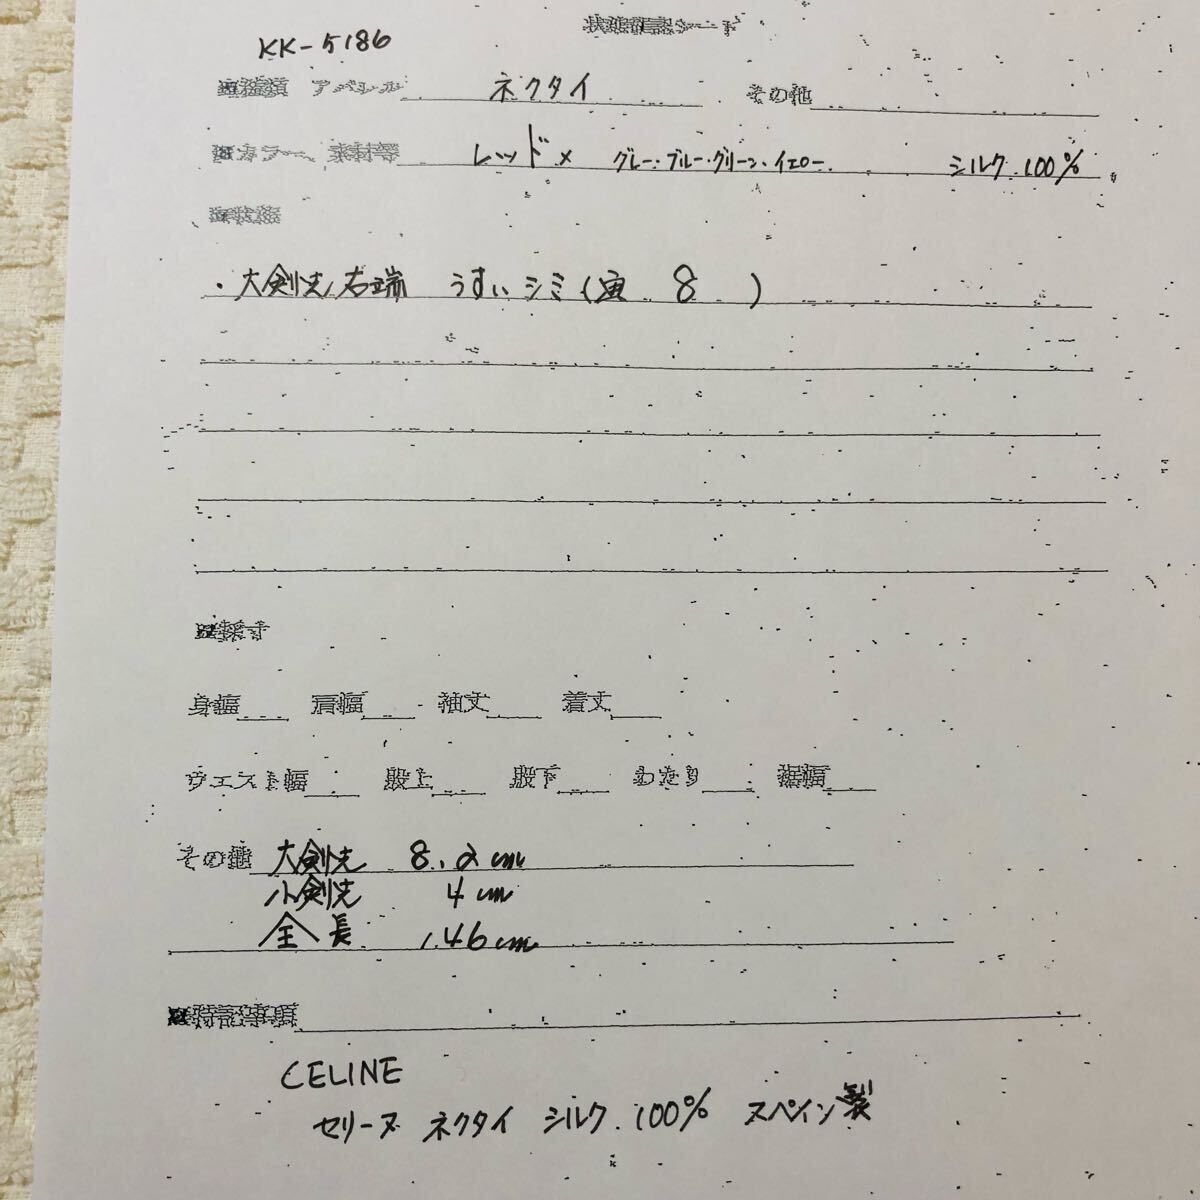 状態確認シート
KK-5186
■種類 アパレル ネクタイ その他
■カラー、素材等 レッド× グレー・ブルー・グリーン・イエロー シルク 100%
■状態
・大剣先右端 うすいシミ(寅 8 )
■採寸
身幅 肩幅 袖丈 着丈
ウエスト幅 股上 股下 わたり 裾幅
その他 大剣先 8.2cm
小剣先 4cm
全長 146cm
■特記事項
CELINE
セリーヌ ネクタイ シルク 100% スペイン製